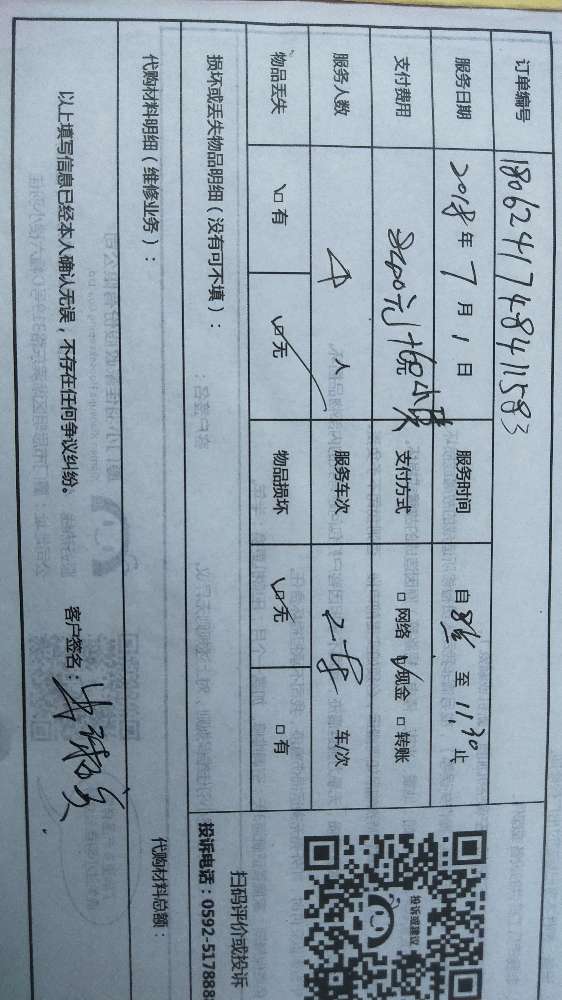 订单编号 180624174841583
服务日期 2018年7月1日 服务时间 自 至11:30止
支付费用 支付方式 □网络 ☑现金 □转账
服务人数 人 服务车次 2 车/次
物品丢失 □有 ☑无 物品损坏 ☑无 □有
损坏或丢失物品明细（没有可不填）：
扫码评价或投诉
投诉电话：0592-517888
投诉或建议
代购材料明细（维修业务）： 代购材料总额：
以上填写信息已经本人确认无误，不存在任何争议纠纷。 客户签名：